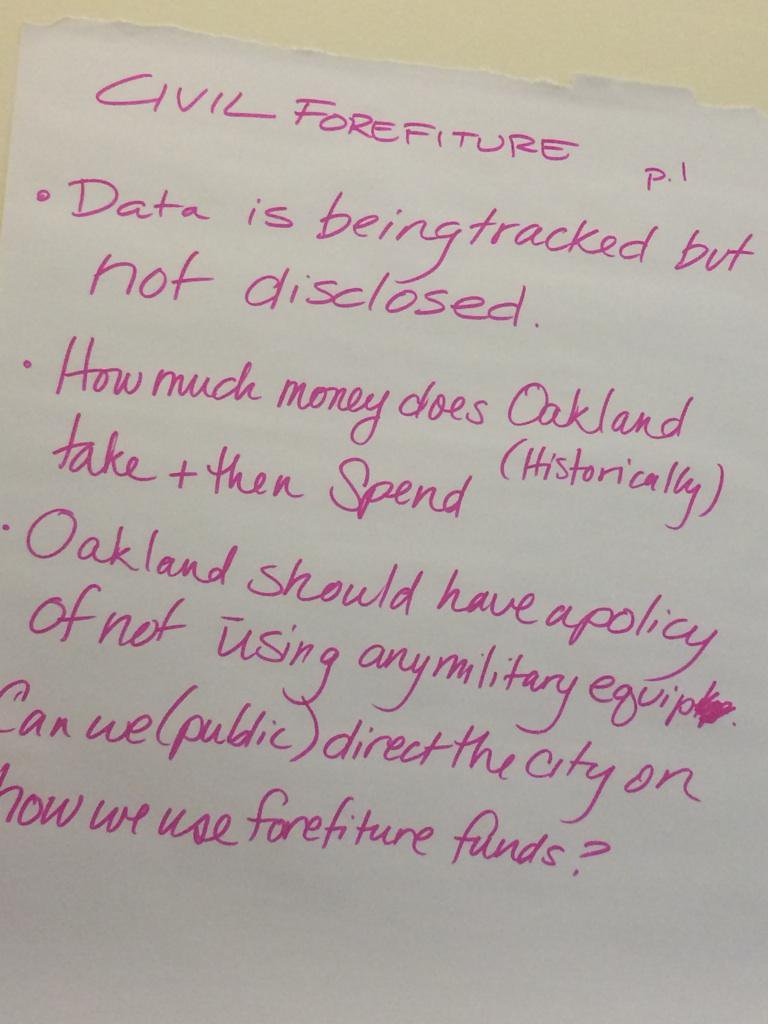 CIVIL FOREFITURE p.1
• Data is being tracked but
not disclosed.
• How much money does Oakland
take + then Spend (Historically)
• Oakland should have a policy
Of not using any military equip.
Can we (public) direct the city on
how we use forefiture funds?